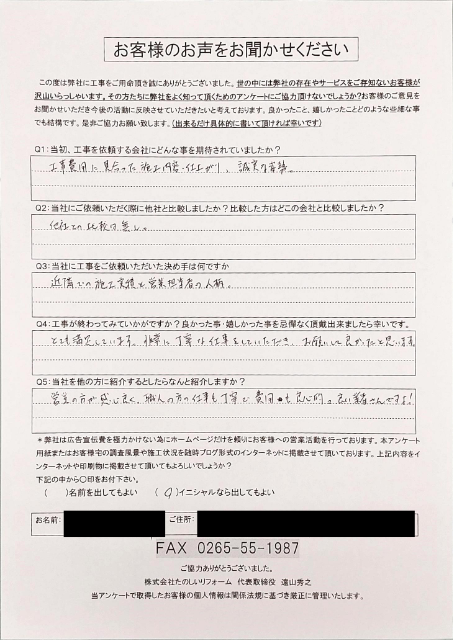 お客様のお声をお聞かせください
この度は弊社に工事をご用命頂き誠にありがとうございました。世の中には弊社の存在やサービスをご存知ないお客様が
沢山いらっしゃいます。その方たちに弊社をよく知って頂くためのアンケートにご協力頂けないでしょうか?お客様のご意見を
お聞かせいただき今後の活動に反映させていただきたいと考えております。良かったこと、嬉しかったことどのような些細な事
でも結構です。是非ご協力お願い致します。(出来るだけ具体的に書いて頂ければ幸いです)
Q1:当初、工事を依頼する会社にどんな事を期待されていましたか?
工事費用に見合った施工内容・仕上がり、誠実な客。
Q2:当社にご依頼いただく際に他社と比較しましたか?比較した方はどこの会社と比較しましたか?
他社との比較は無し。
Q3:当社に工事をご依頼いただいた決め手は何ですか
近隣での施工実績と営業担当者の人柄。
Q4:工事が終わってみていかがですか?良かった事・嬉しかった事を忌憚なく頂戴出来ましたら幸いです。
とても満足しています。非常に丁寧な仕事をしていただき、お願いして良かったと思います
Q5:当社を他の方に紹介するとしたらなんと紹介しますか?
営業の方が感じ良く、職人の方の仕事も丁寧で費用も良心的。良い業者さんですよ!
*弊社は広告宣伝費を極力かけない為にホームページだけを頼りにお客様への営業活動を行っております。本アンケート
用紙またはお客様宅の調査風景や施工状況を随時ブログ形式のインターネットに掲載させて頂いております。上記内容をイ
ンターネットや印刷物に掲載させて頂いてもよろしいでしょうか?
下記の中から〇印をお付下さい。
( )名前を出してもよい (〇)イニシャルなら出してもよい
お名前: ご住所:
FAX 0265-55-1987
ご協力ありがとうございました。
株式会社たのしいリフォーム 代表取締役 遠山秀之
当アンケートで取得したお客様の個人情報は関係法規に基づき厳正に管理いたします。